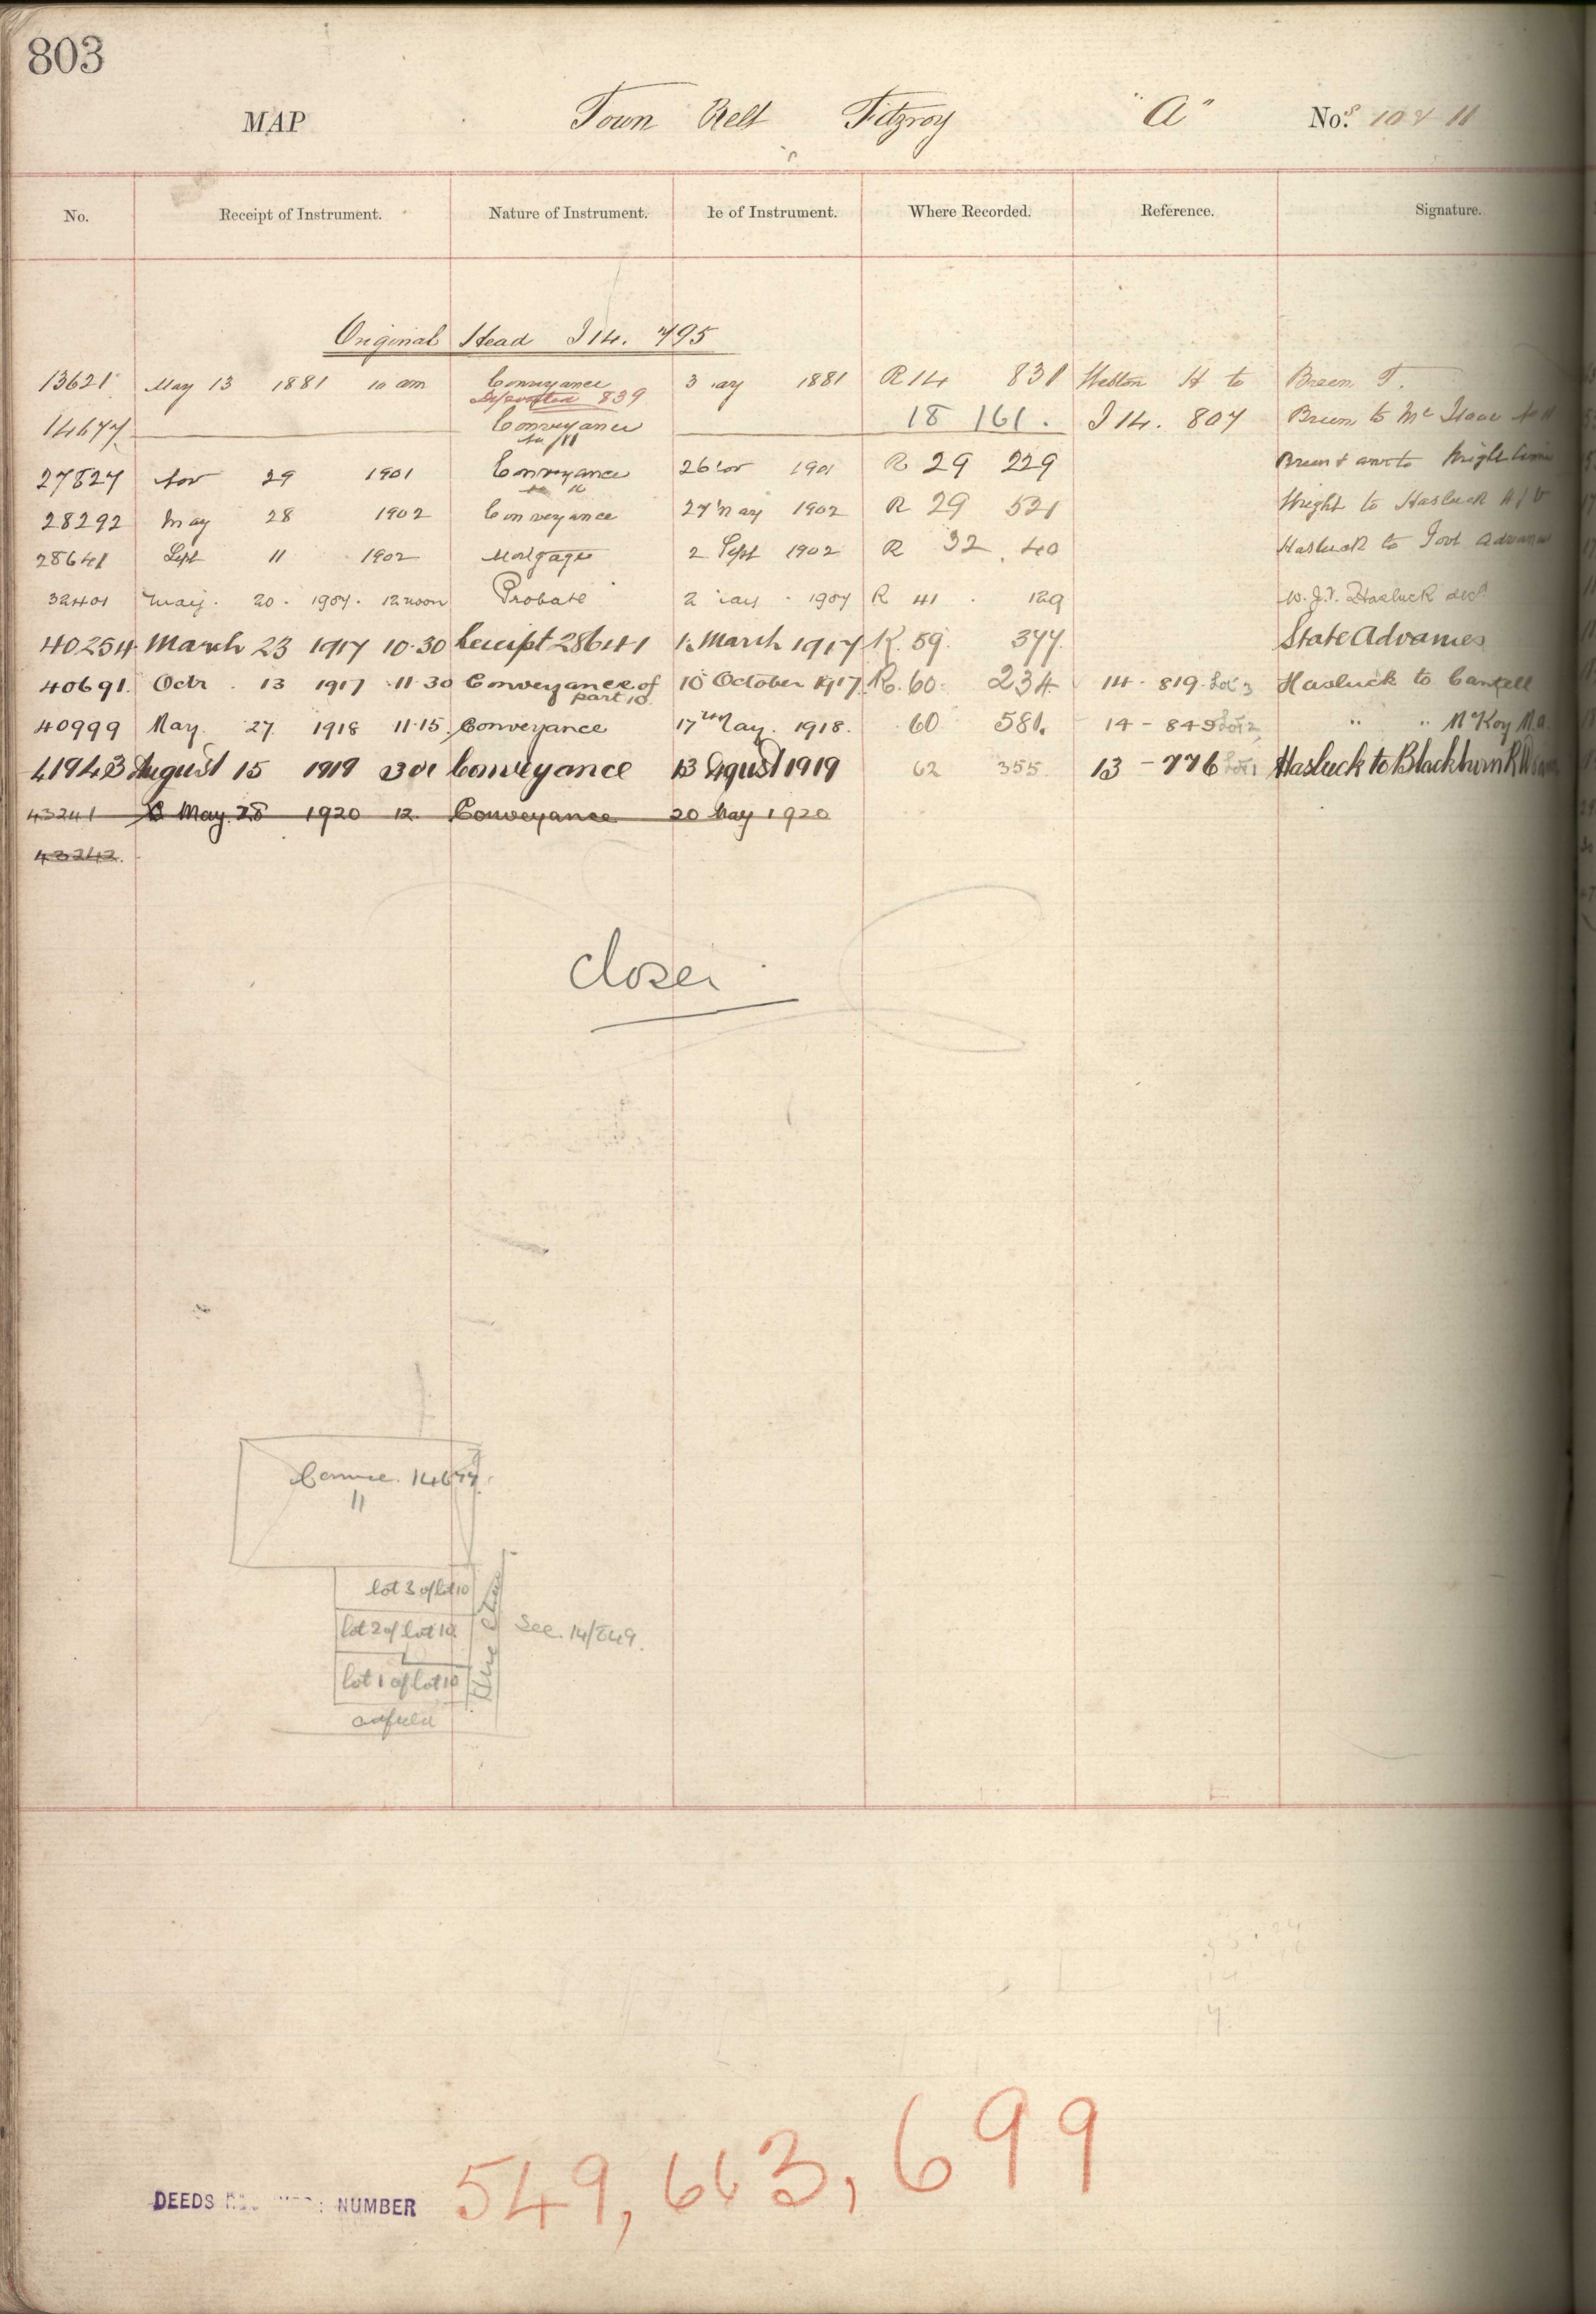 803
MAP Town Belt Fitzroy "A" Nos. 10 & 11
No. Receipt of Instrument. Nature of Instrument. te of Instrument. Where Recorded. Reference. Signature.
Original Head I 14. 795
13621 May 13 1881 10 am Conveyance 3 ay 1881 R 14 831 Weston H to Breen T.
839
14677 Conveyance 18 161. I 14. 807 Breen to Mc Isaac
11
27827 Nov 29 1901 Conveyance 26 ov 1901 R 29 229 Breen & anr to Wright
28292 May 28 1902 Conveyance 27 May 1902 R 29 521 Wright to Hasluck
28641 Sept 11 1902 Mortgage 2 Sept 1902 R 32. 40 Hasluck to Govt Advances
32401 May. 20. 1907. 12 noon Probate 2 1907 R 41. 129 W.J.T. Hasluck decd
40254 March 23 1917 10.30 Receipt 28641 1. March 1917 R. 59. 377. State Advances
40691. Octr. 13 1917 11.30 Conveyance of 10 October 1917. R. 60. 234 14-819. Lot 3 Hasluck to Cantell
part 10
40999 May 27. 1918 11.15. Conveyance 17 May. 1918. 60 581. 14-849 Lot 2 " " McKoy M.A
41943 August 15 1919 Conveyance 13 August 1919 62 355 13-776 Lot 1 Hasluck to Blackburn
43241 May 28 1920 12. Conveyance 20 May 1920
43242.
Closed
Conveyce. 14677.
11
lot 3 of lot 10
lot 2 of lot 10. See. 14/849.
lot 1 of lot 10
DEEDS NUMBER 549, 663, 699